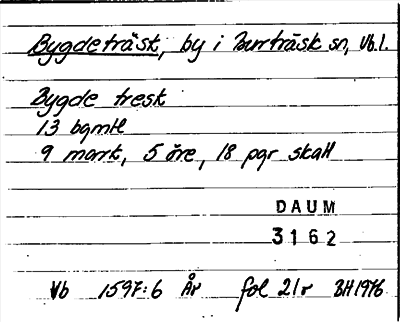 Bygdeträsk, by i Burträsk sn, Vb.l.
Bygde tresk
13 bgmtl
9 mark, 5 öre, 18 pgr skatt
DAUM
3162
Vb 1597:6 År fol 21r BH1976